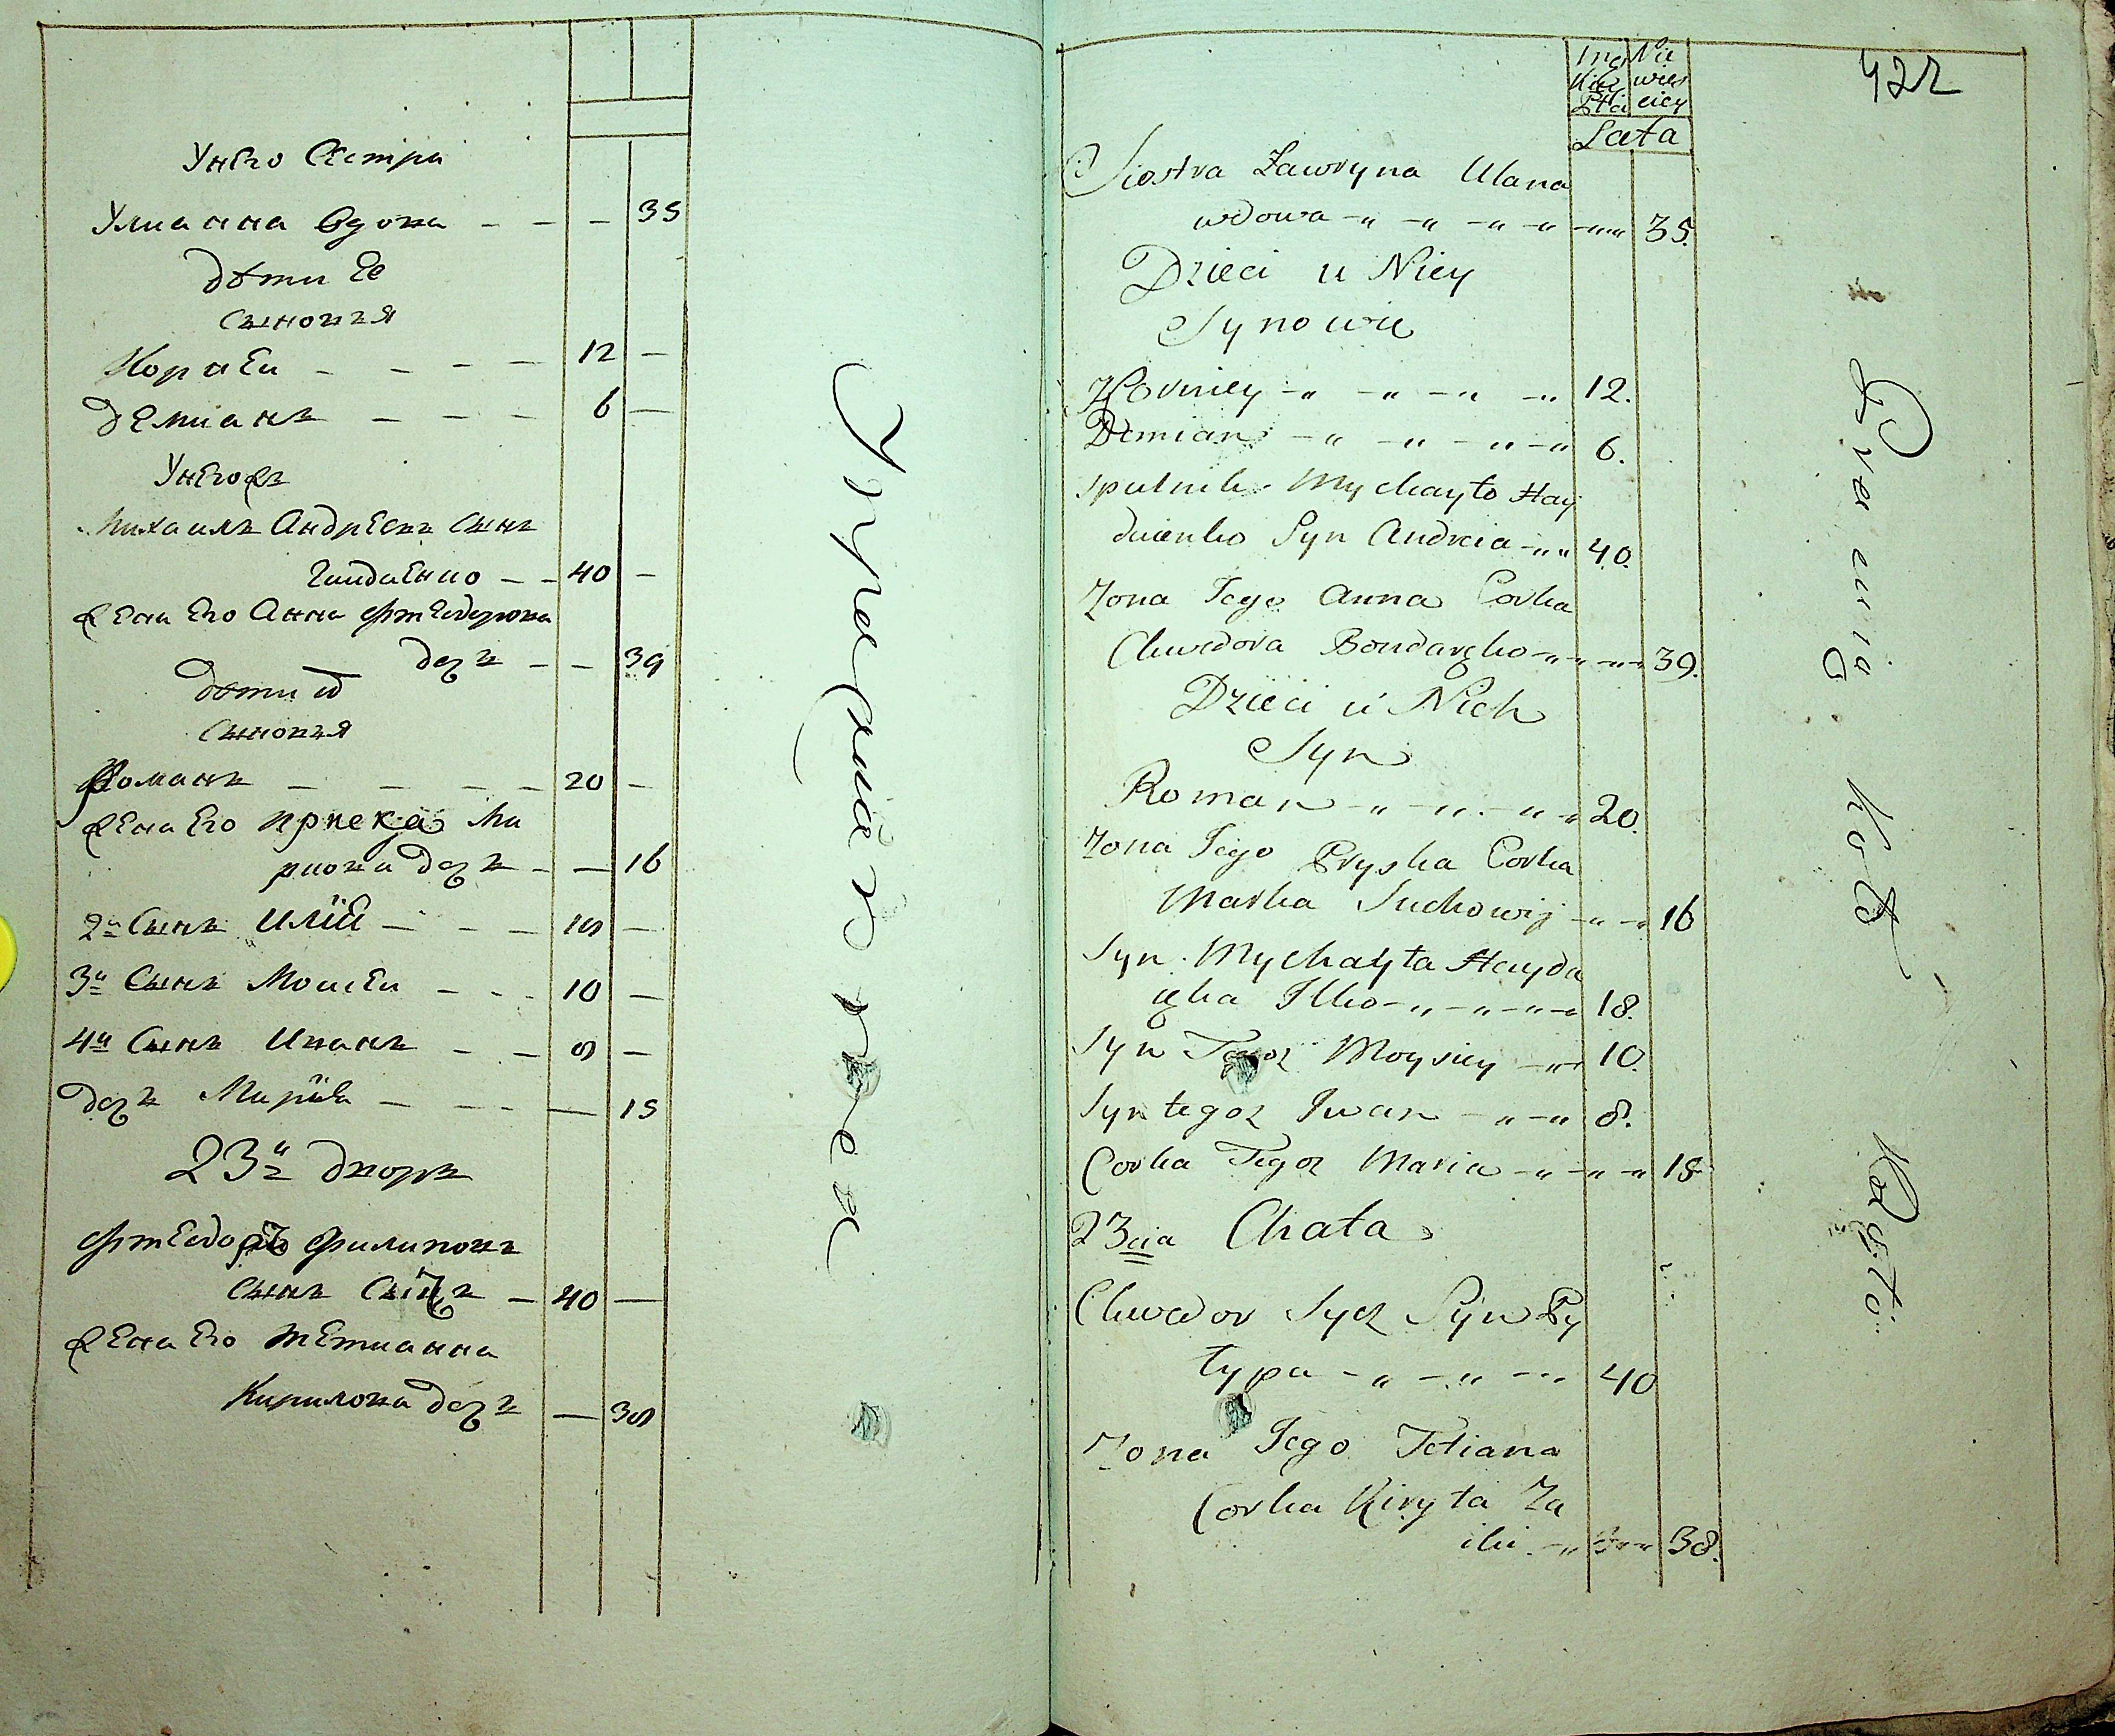 Унего Сестра
Улианна вдова - - - 35
дѣти Ее
сыновья
Корней - - - - 12 -
демианъ - - - - 6 -
Унегожъ
Михаилъ Андреевъ сынъ
Гайдаенко - - 40 -
жена Его Анна Фтеодорова
дочь - - 39
дѣти их
сыновья
Романъ - - - - - 20 -
жена Его Приска Ма
ркова дочь - - 16
2й Сынъ Илїй - - - 18 -
3й Сынъ Моисей - - - 10 -
4й Сынъ Иванъ - - 8 -
дочь Марїя - - - - - 15
23й дворъ
Фтеодоръ Филиповъ
сынъ Сычъ - 40 -
жена Его Тетианна
Кирилова дочь - 38
422
Męz Nie
kiey wies
Płci ciey
Lata
Siostra Ławryna Ulana
wdowa - 35.
Dzieci u Niey
Synowie
Korniey - 12.
Demian - 6.
Sputnik Mychayło Hay
daienko Syn Andreia - 40.
Zona Jego Anna Corka
Chwedora Bondarzko - 39.
Dzieci u Nich
Syn
Roman - 20.
Zona Jego Pryska Corka
Marka Suchowij - 16
Syn Mychayła Hayda
Ilko - 18.
Syn Tegoz Moysiey - 10.
Syn tegoz Iwan - 8.
Corka Tegoz Maria - 15
23cia Chata
Chwedor Sycz Syn Py
łypa - 40
Zona Jego Tetiana
Corka Kiryła Za
iki - 38.